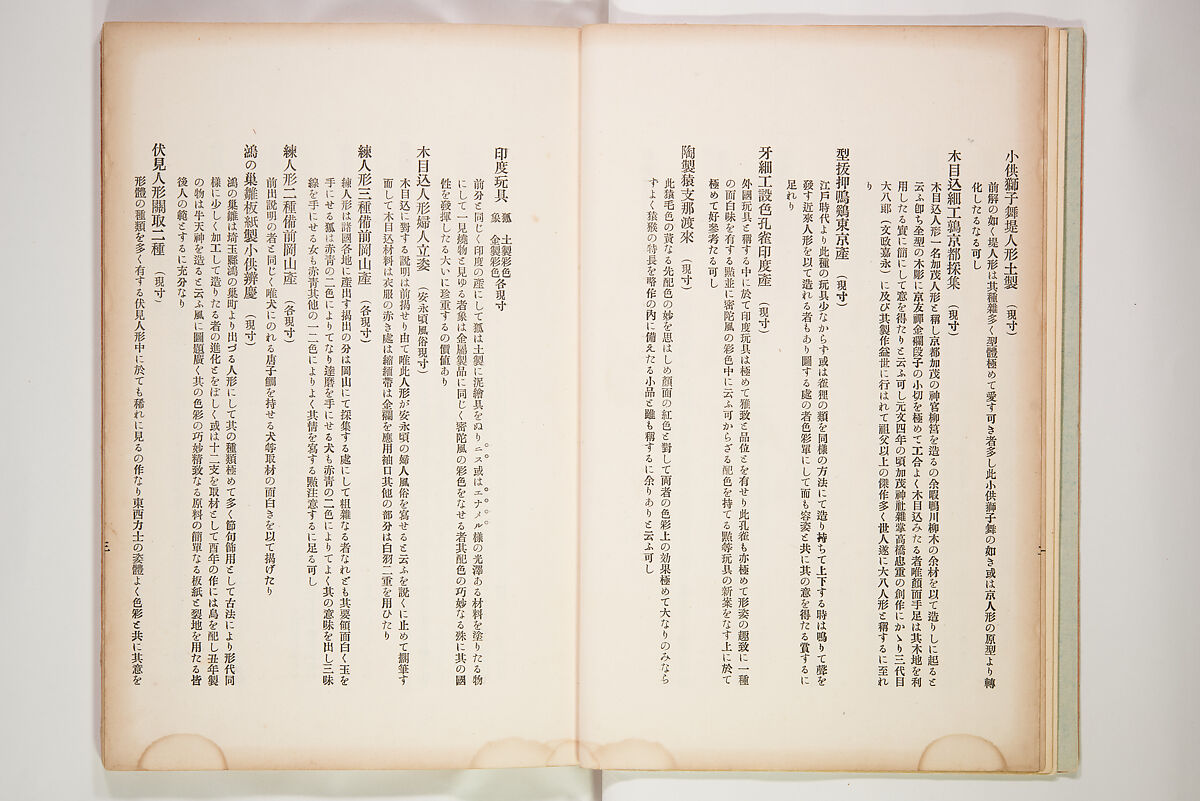 小供獅子舞堤人形土製 (現寸)
前解の如く堤人形は其種雜多く型體極めて愛す可き者多し此小供獅子舞の如き或は京人形の原型より轉
化したるなる可し
木目込細工鶉京都採集 (現寸)
木目込人形一名加茂人形と稱し京都加茂の神官柳筥を造るの余暇鴨川柳木の余材を以て造りしに起ると
云ふ卽ち全型の木彫に京友禪金襴段子の小切を極めて工合よく木目込みたる者唯顏面手足は其木地を利
用したる實に簡にして意を得たりと云ふ可し元文四年の頃加茂神社雜掌高橋忠重の創作にかゝり三代目
大八郎(文政嘉永)に及び其製作益世に行はれて祖父以上の傑作多く世人遂に大八人形と稱するに至れ
り
型拔押鳴鷄東京產 (現寸)
江戶時代より此種の玩具少なからず或は雀狸の類を同樣の方法にて造り持ちて上下する時は鳴りて聲を
發す近來人形を以て造れる者もあり圖する處の者色彩單にして而も容姿と共に其の意を得たる賞するに
足れり
牙細工設色孔雀印度產 (現寸)
外國玩具と稱する中に於て印度玩具は極めて雅致と品位とを有せり此孔雀も亦極めて形姿の趣致に一種
の面白味を有する點並に密陀風の彩色中に云ふ可からざる配色を持てる點等玩具の新案をなす上に於て
極めて好參考たる可し
陶製猿支那渡來 (現寸)
此猿毛色の黃なる先配色の妙を思はしめ顏面の紅色と對して兩者の色彩上の効果極めて大なりのみなら
すよく猿猴の特長を略作の內に備えたる小品と雖も稱するに余りありと云ふ可し
印度玩具 狐 土製彩色 象 金製彩色 各現寸
前分と同じく印度の產にして狐は土製に泥繪具をぬりニス或はエナメル樣の光澤ある材料を塗りたる物
にして一見燒物と見ゆる者象は金屬製品に同じく密陀風の彩色をなせる者其配色の巧妙なる殊に其の國
性を發揮したる大いに珍重するの價値あり
木目込人形婦人立姿 (安永頃風俗現寸)
木目込に對する說明は前揭せり由て唯此人形が安永頃の婦人風俗を寫せると云ふを說くに止めて擱筆す
而して木目込材料は衣服の赤き處は縮緬帶は金襴を應用袖口其他の部分は白羽二重を用ひたり
練人形三種備前岡山產 (各現寸)
練人形は諸國各地に產出す揭出の分は岡山にて採集する處にして粗雜なる者なれども其要領面白く玉を
手にせる狐は赤靑の二色によりてなり達磨を手にせる犬も赤靑の二色によりてよく其の意味を出し三味
線を手にせる女も赤靑其他の一二色によりよく其情を寫する點注意するに足る可し
練人形二種備前岡山產 (各現寸)
前出說明の者と同じく唯犬にのれる唐子鯛を持せる犬等取材の面白きを以て揭げたり
鴻の巢雛板紙製小供辨慶 (現寸)
鴻の巢雛は埼玉縣鴻の巢町より出づる人形にして其の種類極めて多く節句飾用として古法により形代同
樣に少しく加工して造りたる者の進化とをぼしく或は十二支を取材として酉年の作には鳥を配し丑年製
の物は牛天神を造ると云ふ風に圖題廣く其の色彩の巧妙精致なる原料の簡單なる板紙と裂地を用たる皆
後人の範とするに充分なり
伏見人形關取二種 (現寸)
形體の種類を多く有する伏見人形中に於ても稀れに見るの作なり東西力士の姿體よく色彩と共に其意を